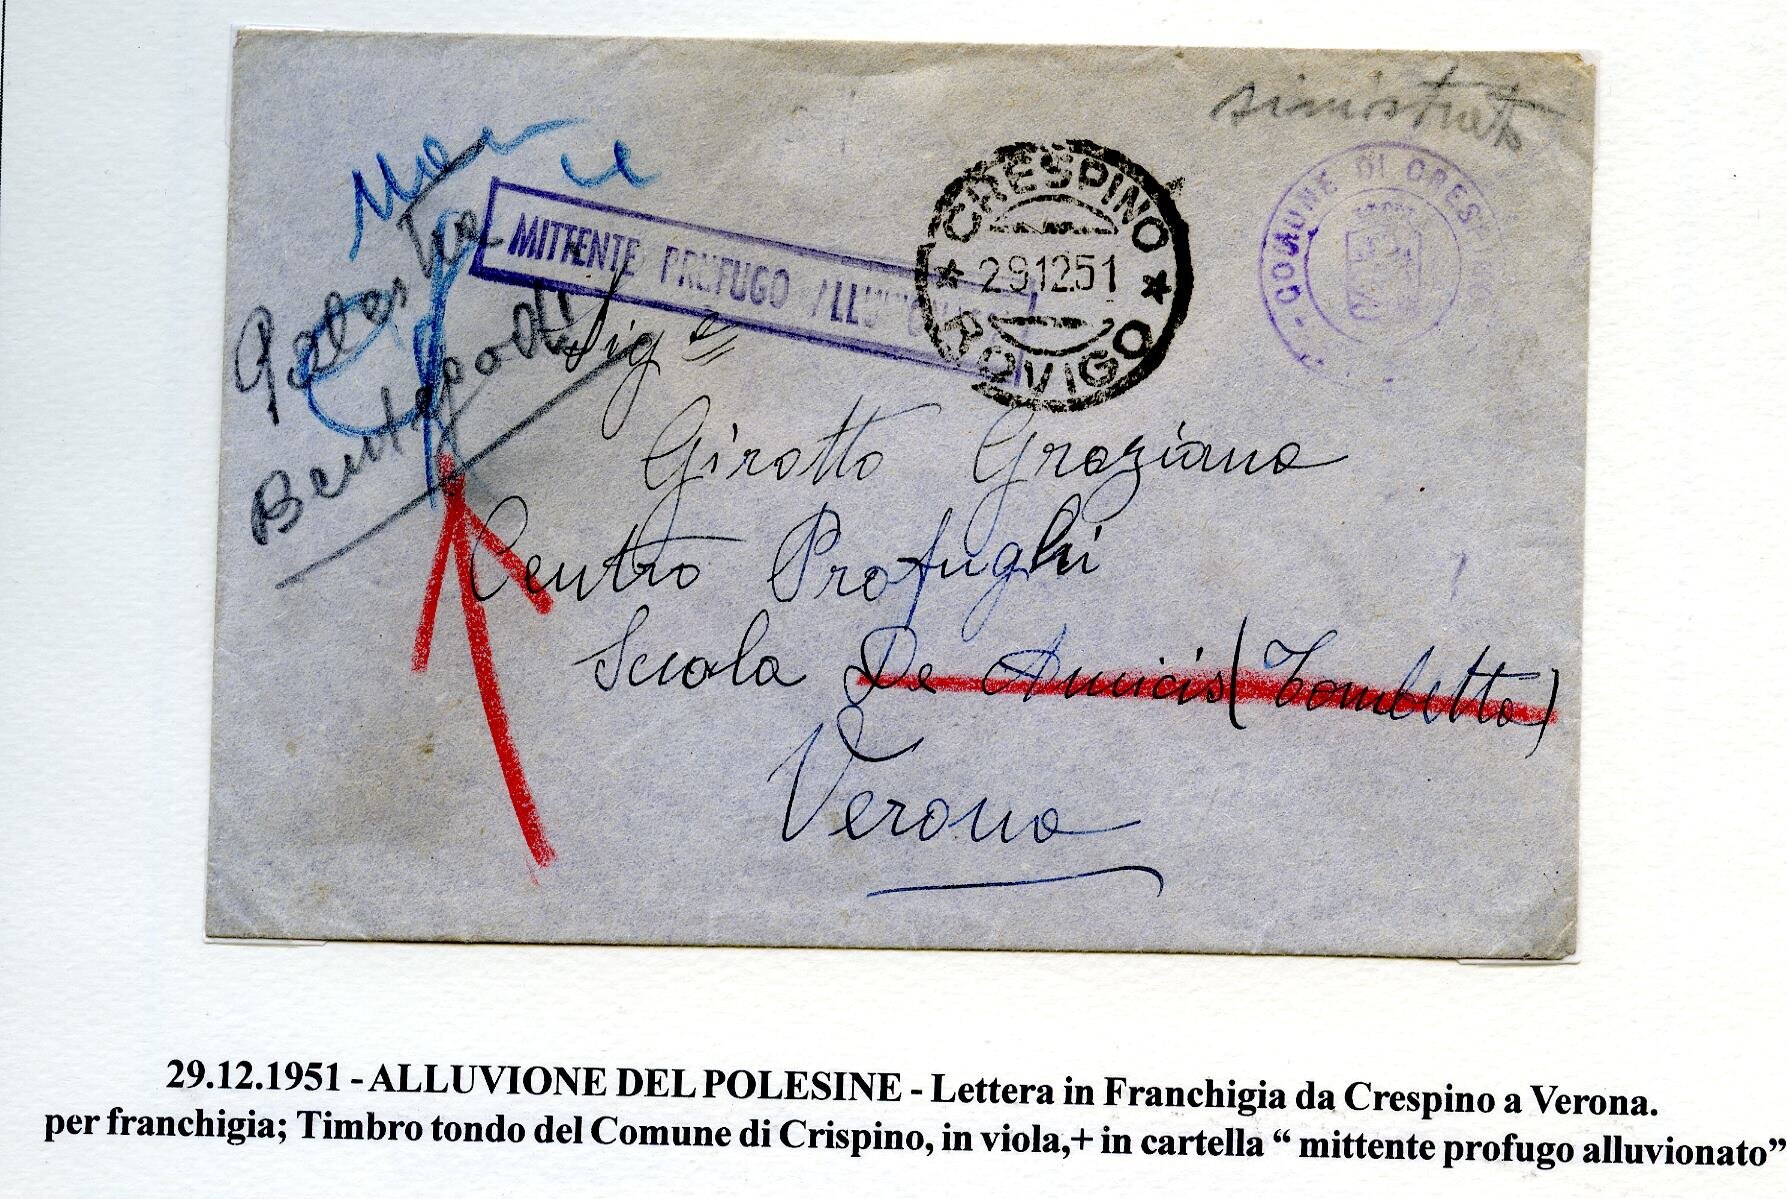 sinistrato
COMUNE DI CRESPINO
CRESPINO
29.12.51
ROVIGO
MITTENTE PROFUGO ALLUVIONATO
Palestra
Bentegodi
Sig.
Girotto Graziano
Centro Profughi
Scuola De Amicis (Tombetta)
Verona
29.12.1951 - ALLUVIONE DEL POLESINE - Lettera in Franchigia da Crespino a Verona.
per franchigia; Timbro tondo del Comune di Crispino, in viola,+ in cartella “ mittente profugo alluvionato”